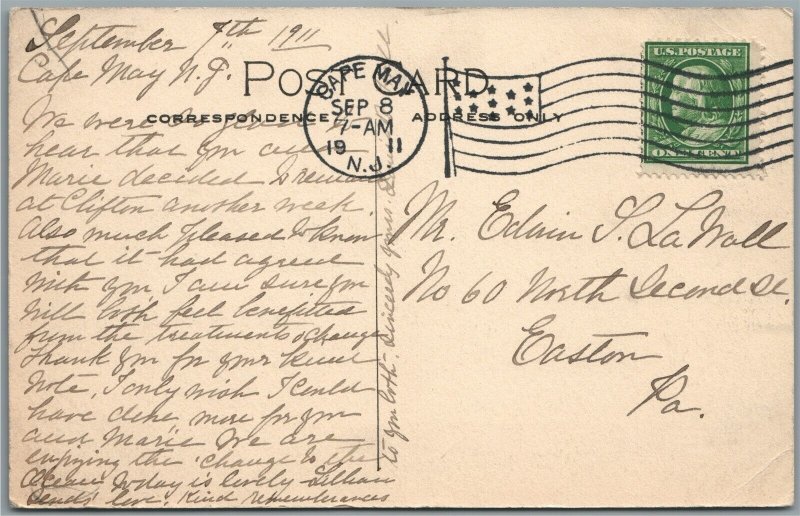 September 7th 1911
Cape May N.J.
POST CARD
CORRESPONDENCE
ADDRESS ONLY
CAPE MAY
SEP 8
7-AM
1911
N.J.
U.S. POSTAGE
ONE CENT
We were so glad to
hear that you and
Marie decided to remain
at Clifton another week.
Also much pleased to know
that it had agreed
with you I am sure you
will both feel benefited
from the treatments & change
Thank you for your kind
note, I only wish I could
have done more for you
and Marie We are
enjoying the change to the
Ocean, today is lovely - Lillian
sends love. Kind remembrances
to you both - Sincerely yours
Mr. Edwin S. LaWall
No 60 North Second St.
Easton
Pa.